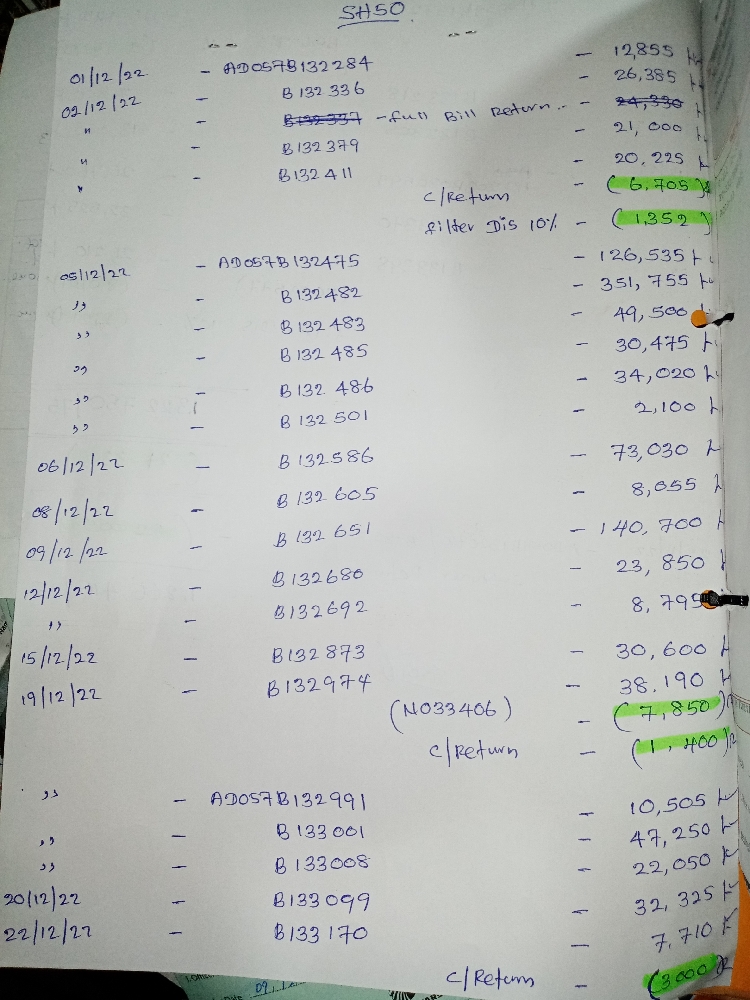 SH50
01/12/22 - AD057B132284 - 12,855
02/12/22 - B132336 - 26,385
" - B132337 - full Bill Return - 24,330
" - B132379 - 21,000
" - B132411 - 20,225
C/Return - (6,705)
filter Dis 10% - (1,352)
05/12/22 - AD057B132475 - 126,535
,, - B132482 - 351,755
,, - B132483 - 49,500
,, - B132485 - 30,475
,, - B132486 - 34,020
,, - B132501 - 2,100
06/12/22 - B132586 - 73,030
08/12/22 - B132605 - 8,055
09/12/22 - B132651 - 140,700
12/12/22 - B132680 - 23,850
,, - B132692 - 8,795
15/12/22 - B132873 - 30,600
19/12/22 - B132974 - 38,190
(N033406) - (7,850)
C/Return - (1,400)
,, - AD057B132991 - 10,505
,, - B133001 - 47,250
,, - B133008 - 22,050
20/12/22 - B133099 - 32,325
22/12/22 - B133170 - 7,710
C/Return - (3000)